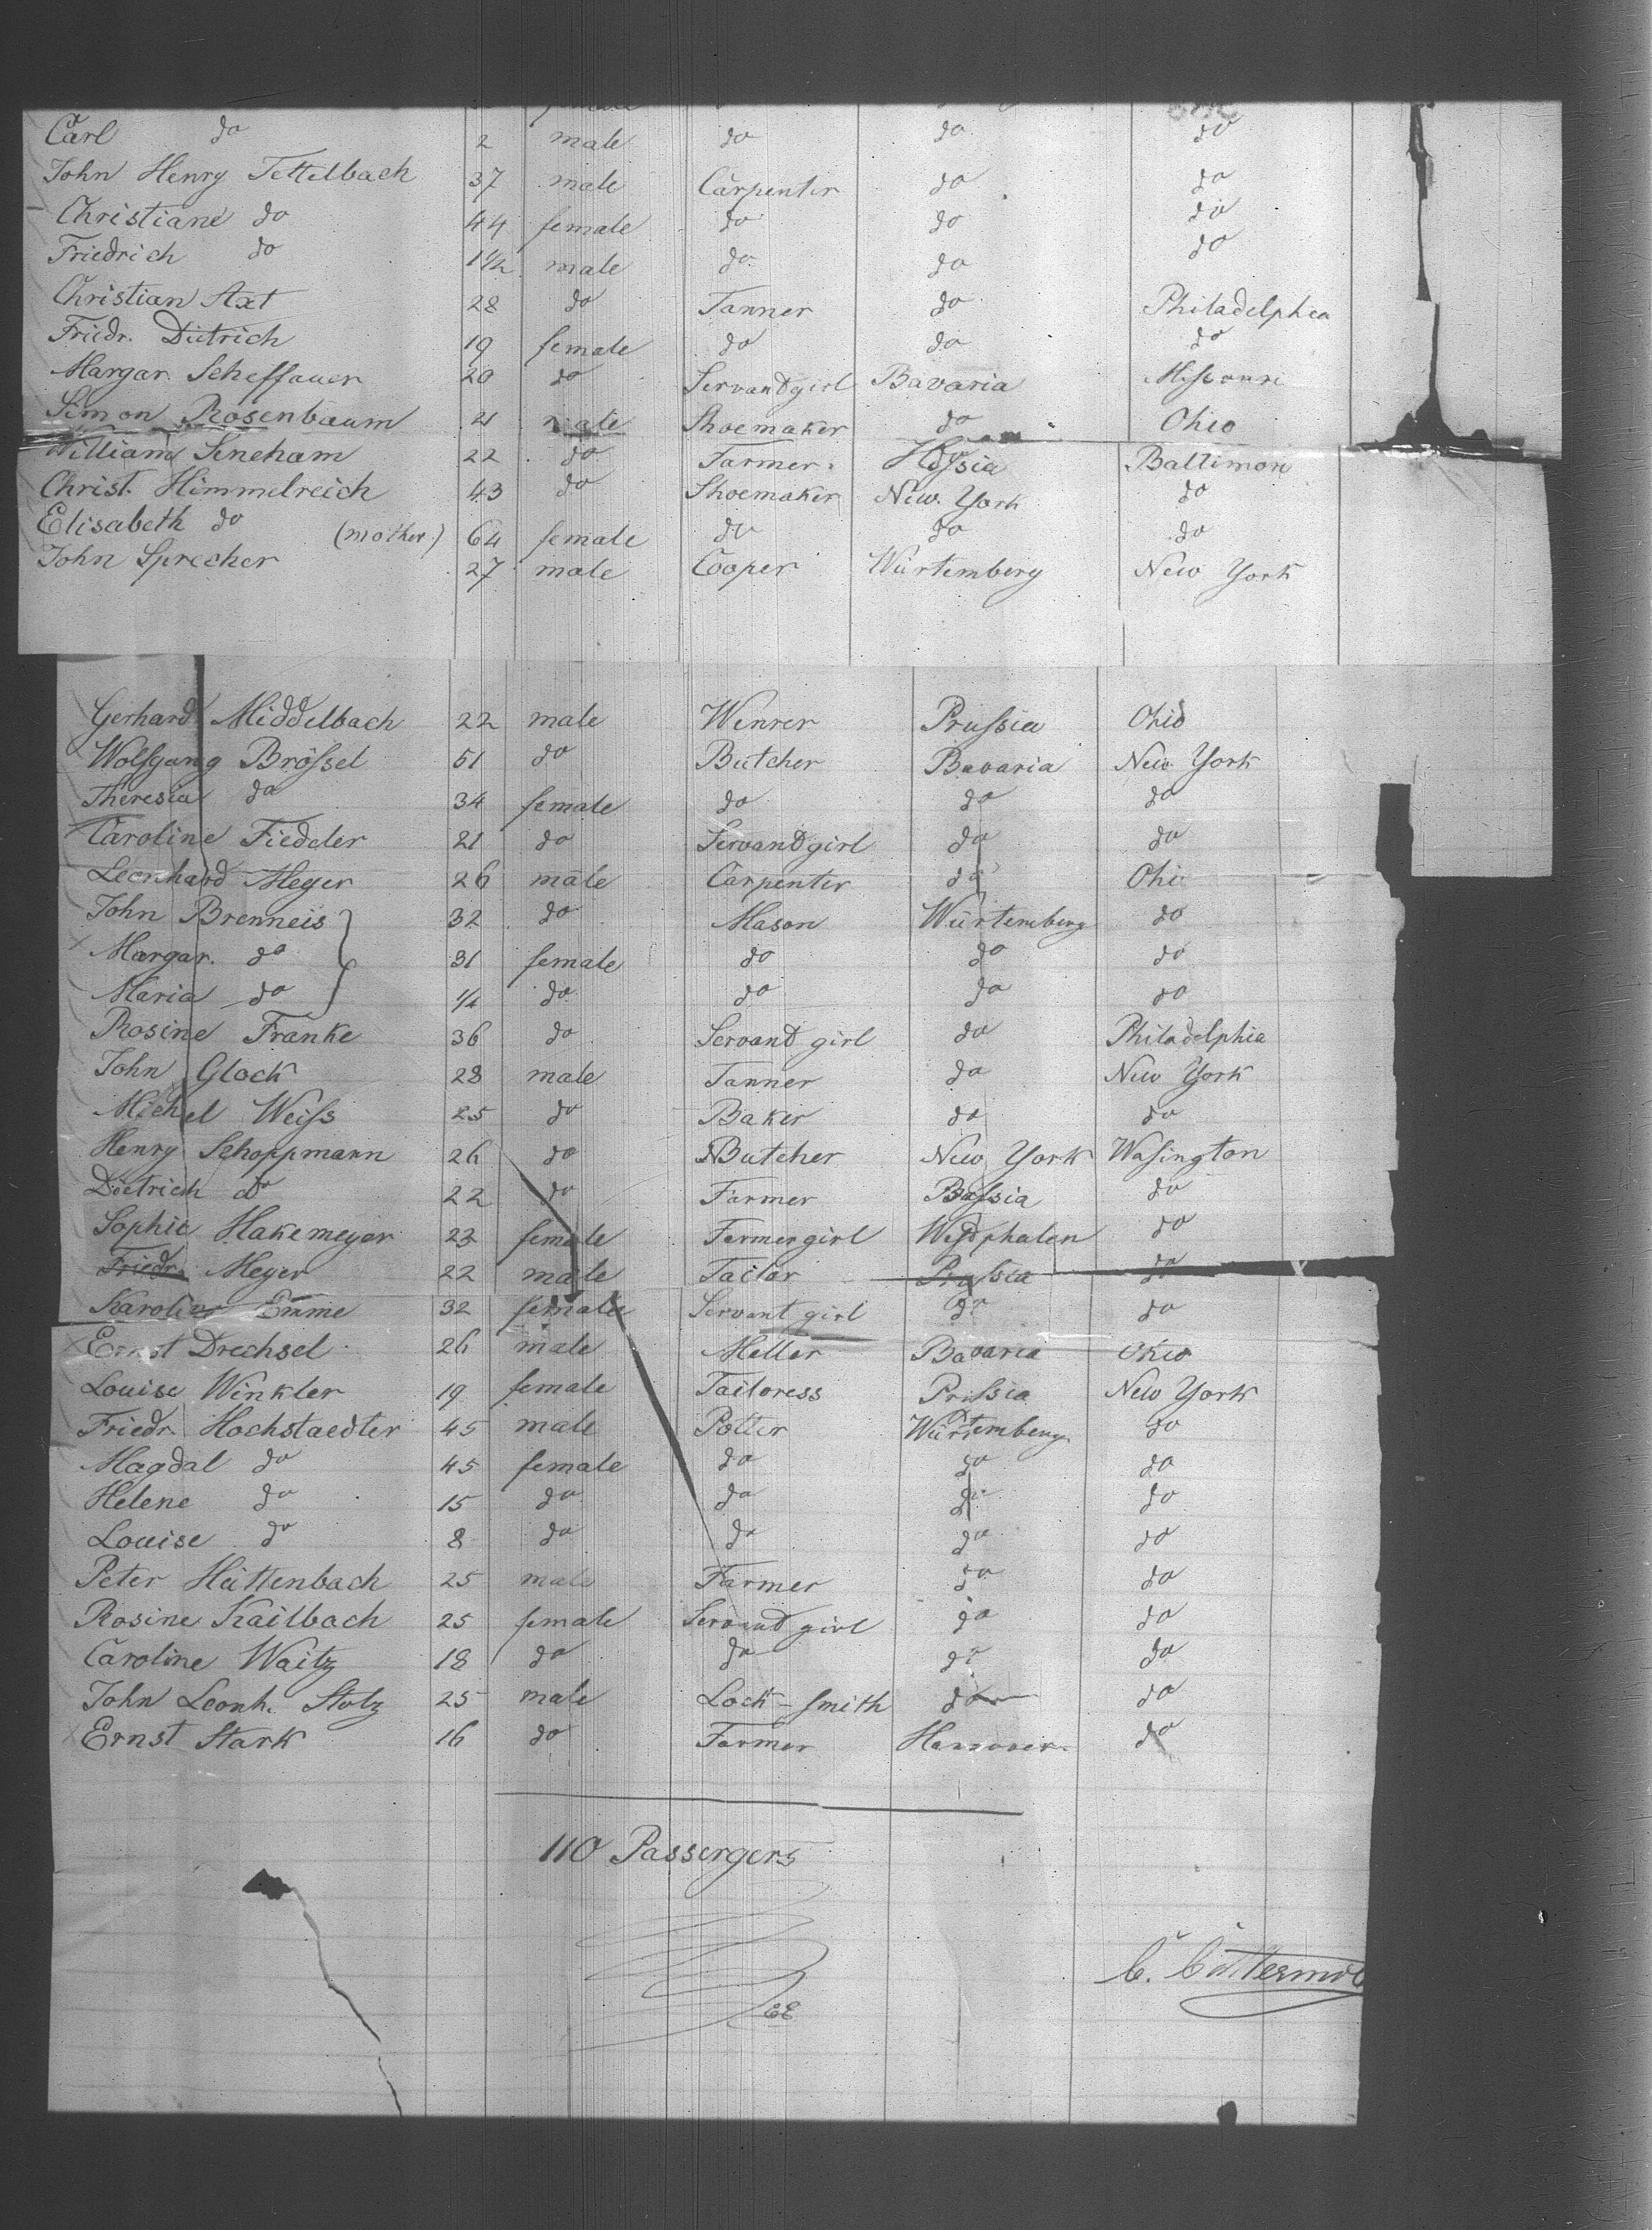 Carl do 2 male do do do
John Henry Tettelbach 37 male Carpenter do do
Christiane do 44 female do do do
Friedrich do 1 1/2 male do do do
Christian Axt 28 do Tanner do Philadelphia
Friedr. Dietrich 19 female do do do
Margar. Scheffauer 20 do Servandgirl Bavaria Missouri
Simon Rosenbaum 21 male Shoemaker do Ohio
William Seneham 22 do Farmer Baltimore
Christ. Himmelreich 43 do Shoemaker New York do
Elisabeth do (mother) 64 female do do do
John Sprecher 27 male Cooper Würtemberg New York
Gerhard Middelbach 22 male Prussia Ohio
Wolfgang Brössel 51 do Butcher Bavaria New York
Theresia do 34 female do do do
Caroline Fiedeler 21 do Servandgirl do do
Leonhard Meyer 26 male Carpenter do Ohio
John Brenneis 32 do Mason Würtemberg do
Margar. do 31 female do do do
Maria do 1/4 do do do do
Rosine Franke 36 do Servand girl do Philadelphia
John Glock 28 male Tanner do New York
Michel Weiss 25 do Baker do do
Henry Schoppmann 26 do Butcher New York Wasington
Dietrich do 22 do Farmer do
Sophie Hakemeyer 23 female Farmergirl Westphalen do
Friedr. Meyer 22 male Tailor Prussia do
Karoline Emme 32 female Servant girl do do
Ernst Drechsel 26 male Meller Bavaria Ohio
Louise Winkler 19 female Tailoress Prussia New York
Friedr. Hochstaedter 45 male Potter Würtemberg do
Magdal do 45 female do do do
Helene do 15 do do do do
Louise do 8 do do do do
Peter Hüttenbach 25 male Farmer do do
Rosine Kailbach 25 female Servand girl do do
Caroline Waitz 18 do do do do
John Leonh. Stolz 25 male Lock-smith do do
Ernst Stark 16 do Farmer Hannover do
110 Passergers